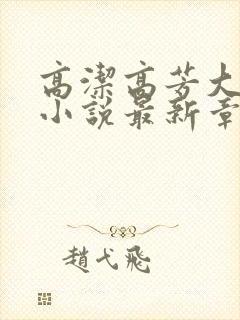 高潔高芳大
小說最新章
趙弋飛